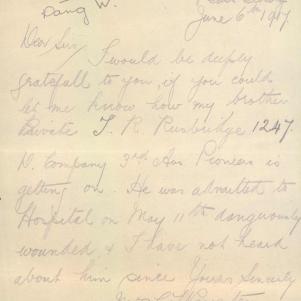 Pang W.
June 6th 1917
Dear Sir, I would be deeply
gratefull to you, if you could
let me know how my brother
Private T. R. Rusbridge 1247.
D. Company 3rd Aus Pioneers is
getting on. He was admitted to
Hospital on May 11th dangerously
wounded, & I have not heard
about him since Yours Sincerely